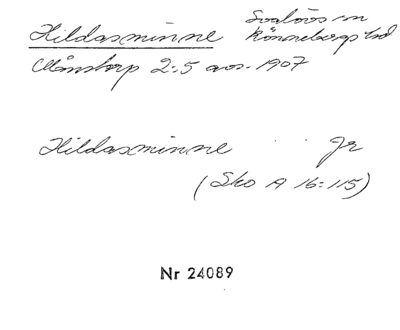 Hildasminne Svalövs sn
Rönnebergs hd
Månstorp 2:5 avs. 1907
Hildasminne Jr
(Sko A 16:115)
Nr 24089